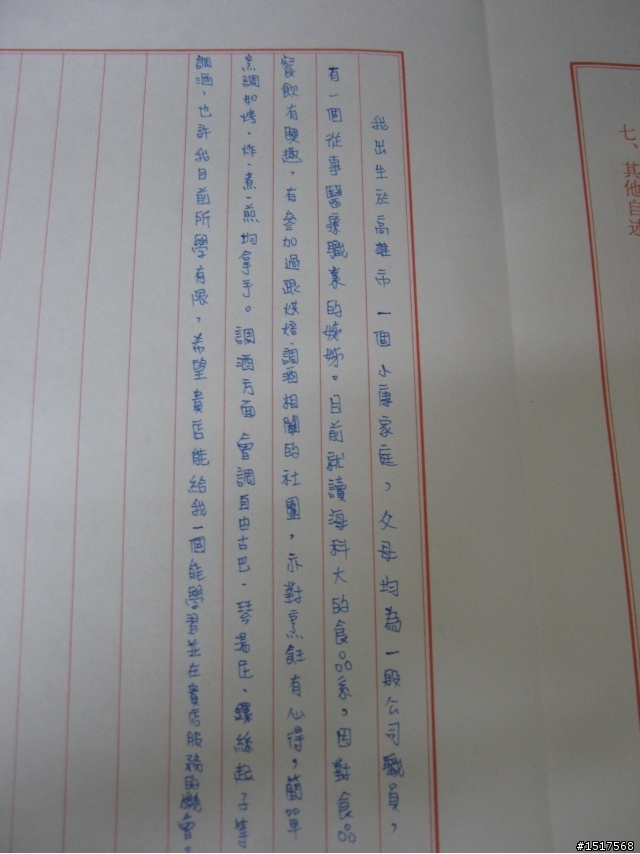 七、其他自述
我出生於高雄市一個小康家庭，父母均為一般公司職員，
有一個從事醫療職業的姊姊。目前就讀海科大的食品系，因對食品
餐飲有興趣，有參加過跟烘焙、調酒相關的社團，亦對烹飪有心得，簡單
烹調如烤、炸、煮、煎均拿手。調酒方面會調自由古巴、琴湯尼、螺絲起子等
調酒，也許我目前所學有限，希望貴店能給我一個能學習並在貴店服務的機會。
#1517568